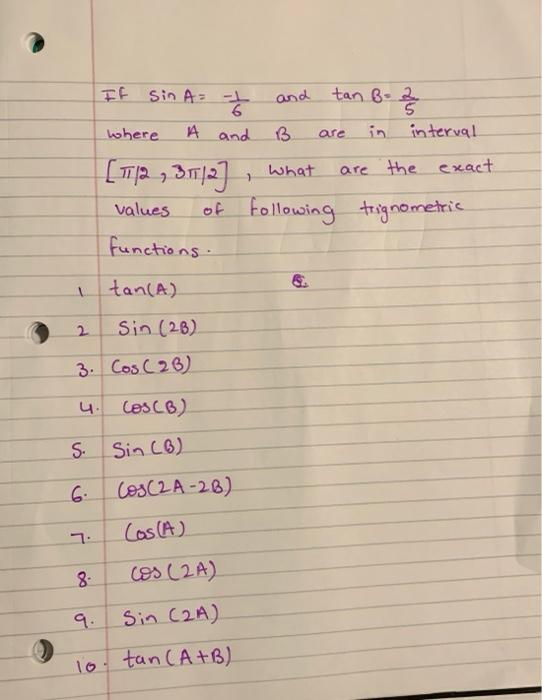 If Sin A = -1/6 and tan B = 2/5
where A and B are in interval
[π/2, 3π/2], what are the exact
values of following trignometric
functions.
1 tan(A)
2 Sin (2B)
3. Cos(2B)
4. Cos(B)
5. Sin (B)
6. Cos(2A-2B)
7. Cos(A)
8. cos (2A)
9. Sin (2A)
10. tan(A+B)